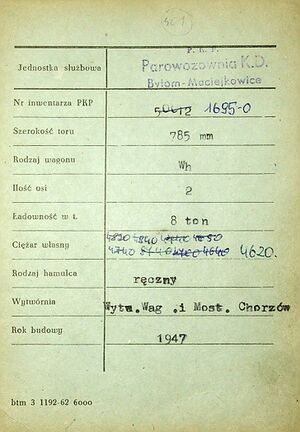 P. K. P.
Jednostka służbowa Parowozownia K.D.
Bytom-Maciejkowice
Nr inwentarza PKP 1695-0
Szerokość toru 785 mm
Rodzaj wagonu Wh
Ilość osi 2
Ładowność w t. 8 ton
Ciężar własny 4620.
Rodzaj hamulca ręczny
Wytwórnia Wytw.Wag .i Most. Chorzów
Rok budowy 1947
btm 3 1192-62 6000